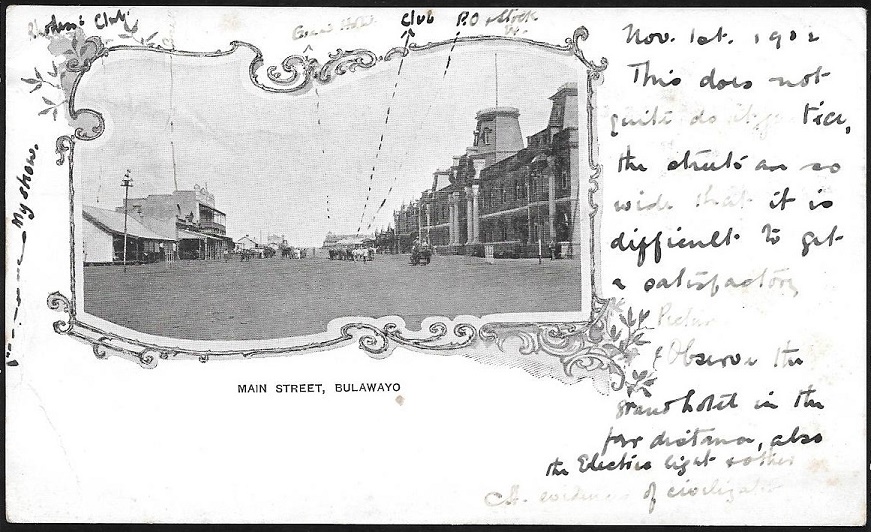 Club
P.O
My show.
MAIN STREET, BULAWAYO
Nov. 1st. 1902
This does not
quite do
the streets are so
wide that it is
difficult to get
a satisfactory
Observe the
grand hotel in the
far distance, also
the Electric light & other
evidences of civilization